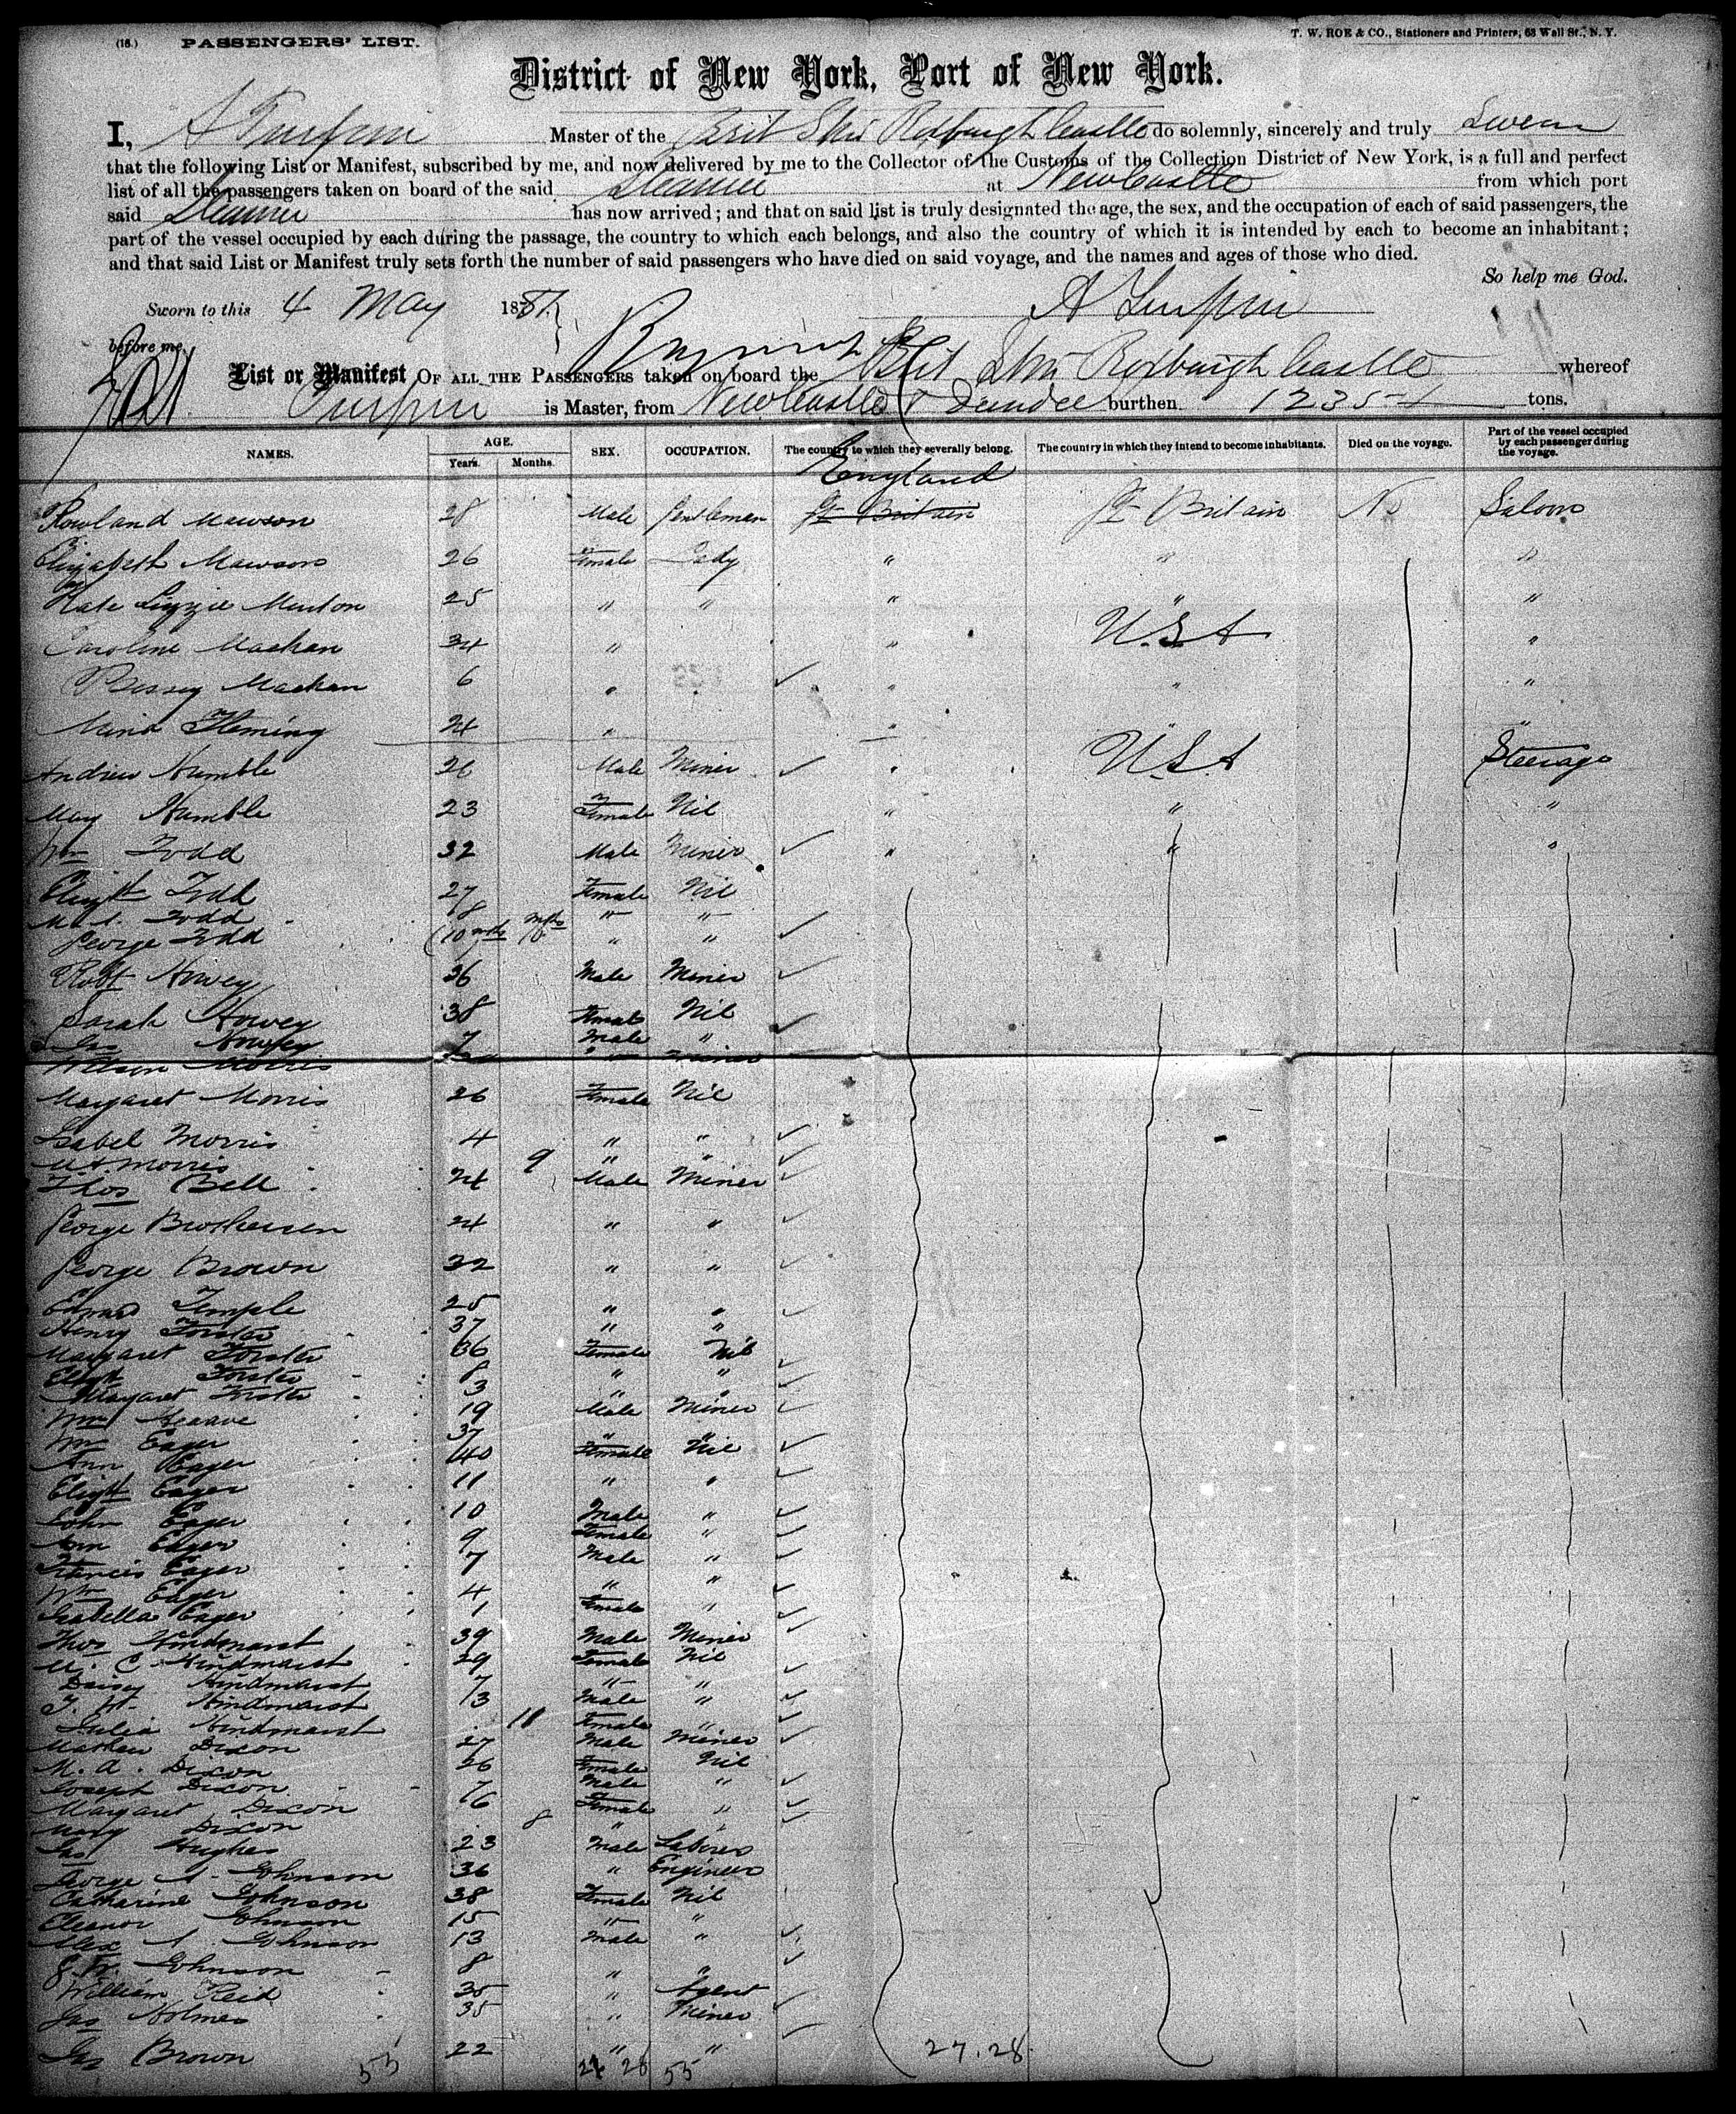 (16.) PASSENGERS' LIST. T. W. ROE & CO., Stationers and Printers, 63 Wall St., N. Y.
District of New York, Port of New York.
I, A Turpin Master of the Brit Str Roxburgh Castle do solemnly, sincerely and truly Swear
that the following List or Manifest, subscribed by me, and now delivered by me to the Collector of the Customs of the Collection District of New York, is a full and perfect
list of all the passengers taken on board of the said Steamer at Newcastle from which port
said Steamer has now arrived; and that on said list is truly designated the age, the sex, and the occupation of each of said passengers, the
part of the vessel occupied by each during the passage, the country to which each belongs, and also the country of which it is intended by each to become an inhabitant;
and that said List or Manifest truly sets forth the number of said passengers who have died on said voyage, and the names and ages of those who died.
So help me God.
Sworn to this 4 May 1881 A Turpin
before me
List or Manifest OF ALL THE PASSENGERS taken on board the Brit Str Roxburgh Castle whereof
Turpin is Master, from Newcastle & Dundee burthen 1235 tons.
NAMES. AGE. Years. Months. SEX. OCCUPATION. The country to which they severally belong. The country in which they intend to become inhabitants. Died on the voyage. Part of the vessel occupied by each passenger during the voyage.
England
Rowland Mawson 28 Male Gentleman Gt Britain Gt Britain No Saloon
Elizabeth Mawson 26 Female Lady " " "
Kate Lizzie Menton 25 " " " " "
Caroline Machan 34 " " U.S.A "
Bessy Machan 6 " " " "
Mina Fleming 24 " " "
Andrew Humble 26 Male Miner " U.S.A Steerage
May Humble 23 Female Nil " " "
Wm Todd 32 Male Miner " " "
Elizth Todd 27 Female Nil
Todd 8 " "
George Todd (10 mths 10 mths " "
Robt Howey 36 Male Miner
Sarah Howey 38 Female Nil
Jas Howey 7 Male "
Morris " Miner
Margaret Morris 26 Female Nil
Isabel Morris 4 " "
M A Morris 9 " "
Thos Bell 24 Male Miner
George Brotherson 24 " "
George Brown 32 " "
Edward Temple 25 " "
Henry Forster 37 " "
Margaret Forster 36 Female Nil
Elizth Forster 8 " "
Margaret Forster 3 " "
Wm 19 Male Miner
Wm Eager 37 " "
Ann Eager 40 Female Nil
Elizth Eager 11 " "
John Eager 10 Male "
Ann Eager 9 Female "
Francis Eager 7 Male "
Wm Eager 4 " "
Isabella Eager 1 Female "
Thos Hindmarst 39 Male Miner
M. C. Hindmarst 29 Female Nil
Daisey Hindmarst 7 " "
J. W. Hindmarst 3 Male "
Julia Hindmarst 11 Female "
Mathew Dixon 27 Male Miner
M. A. Dixon 26 Female Nil
Joseph Dixon 7 Male "
Margaret Dixon 6 Female "
Mary Dixon 8 " "
Jas Hughes 23 Male Laborer
George A. Johnson 36 " Engineer
Catharine Johnson 38 Female Nil
Eleanor Johnson 15 " "
Alex A. Johnson 13 Male "
J. W. Johnson 8 " "
William Reid 35 " Agent
Jas Holmes 35 " Miner
Jas Brown 22 " "
55 28 55 27.28